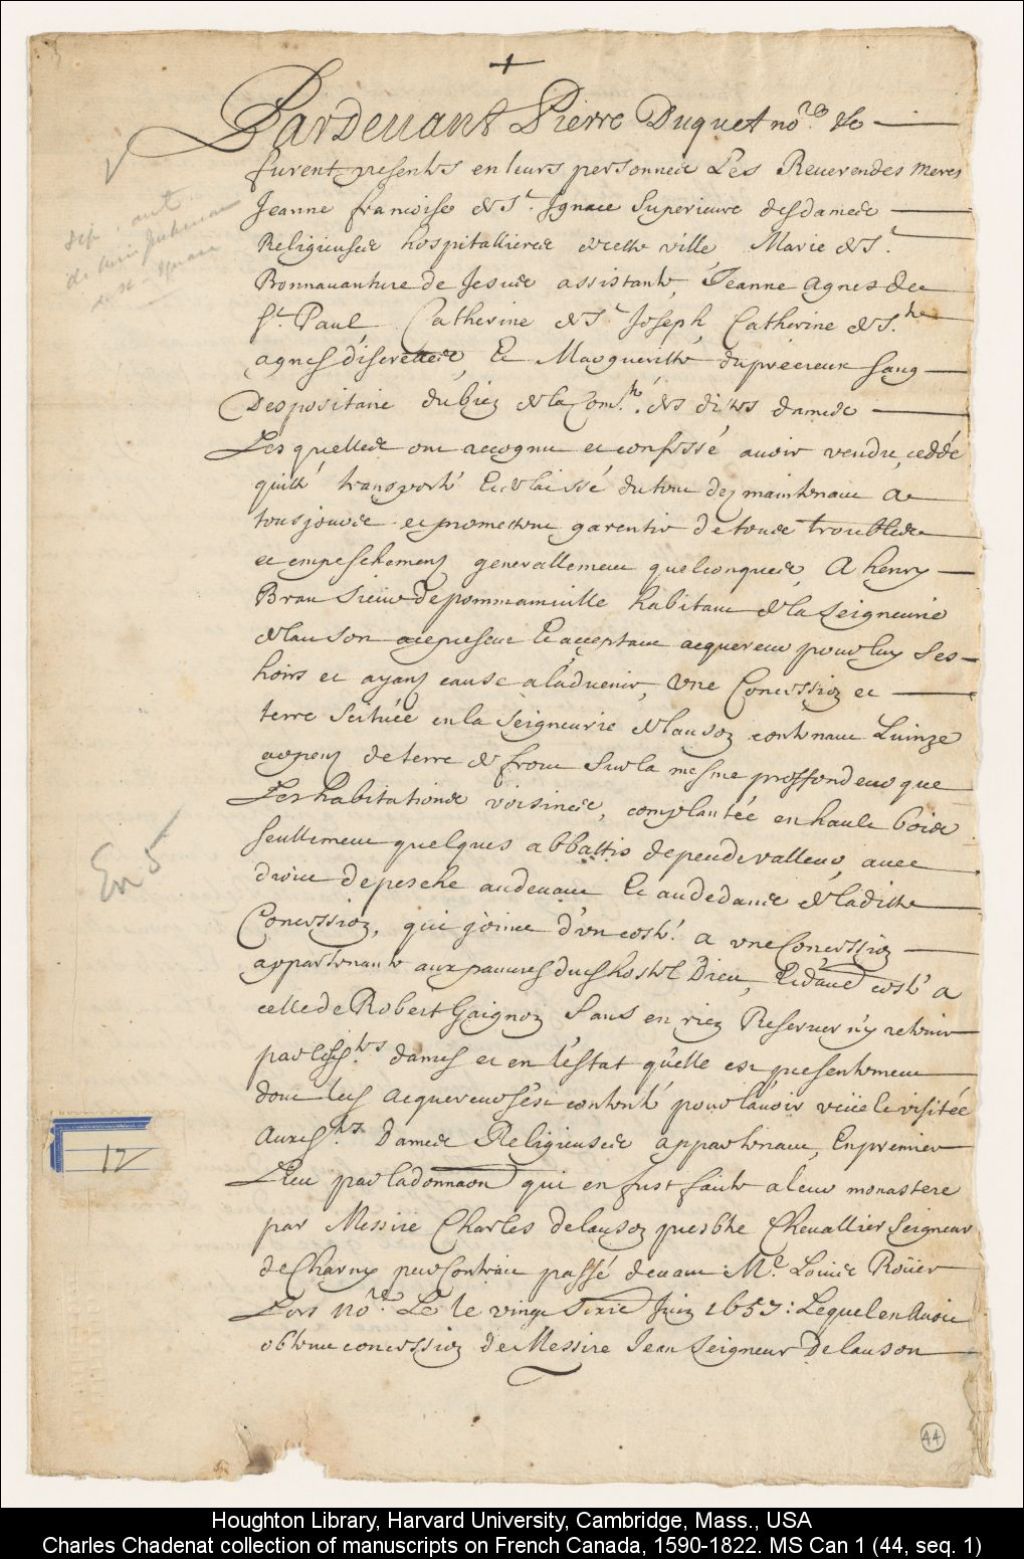 +
Pardeuant Pierre Duquet no.re &c
furent presentes en leurs personnes Les Reuerendes meres
Jeanne francoise de St. Ignace Superieure des dames
Religieuses hospitallieres de cette ville, Marie de St.
Bonnauanture de Jesus assistante, Jeanne Agnes de
St. Paul, Catherine de St. Joseph, Catherine de Ste.
agnes discrettes, Et Margueritte du precieux sang
Depositaire du bien de la Com.té des dittes dames
Lesquelles ont recognu et confessé auoir vendu, ceddé
quitté transporté Et delaissé du tout dez maintenant A
tousjours et promettent garentir de tous troubles
et empeschemens generallement quelconques, A henry
Brau Sieur de pommainuille habitant de la Seigneurie
de lauson a ce present Et acceptant acquereur pour luy Ses
hoirs et ayans cause a l'aduenir, Vne Concession et
terre Scituée en la Seigneurie de lauson contenant Quinze
arpens de terre de front Sur la mesme proffondeur que
Les habitations voisines, complantée en haute bois
seullement quelques abbattis de peu de valleur, auec
droict de pesche au deuant Et au dedans de laditte
Concession, qui joinct d'vn costé a vne Concession
appartenante aux pauures dud. hostel Dieu, Et d'autre costé a
celle de Robert Gaignon Sans en rien Reseruer n'y retenir
par lesd.tes dames et en l'estat qu'elle est presentement
dont led. Acquereur s'est contenté pour l'auoir veüe Et visitée
Auxd.tes Dames Religieuses appartenant, En premier
Lieu par la donnaon qui en fust faicte a leur monastere
par Messire Charles de lauson presbtre Cheuallier Seigneur
de Charny par Contract passé deuant M.e Louis Roüer
Lors no.re Le le vingt Sixie Juin 1657: Lequel en Auoit
obtenu concession de Messire Jean Seigneur De lauson
En 5
12
44
Houghton Library, Harvard University, Cambridge, Mass., USA
Charles Chadenat collection of manuscripts on French Canada, 1590-1822. MS Can 1 (44, seq. 1)